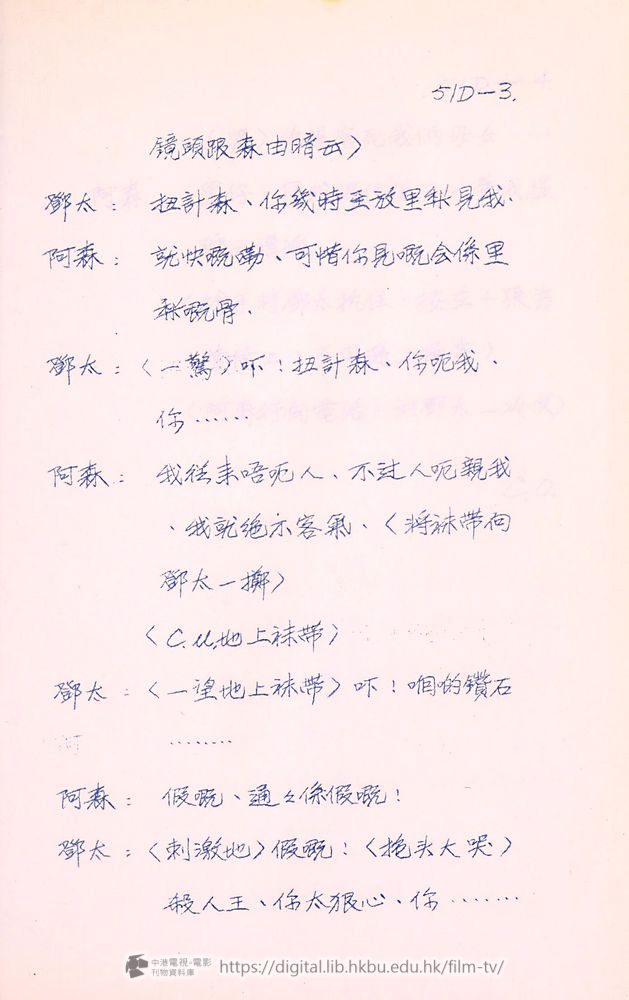 51D-3.
鏡頭跟森由暗云〉
鄧太：扭計森、你幾時至放里秋見我.
阿森：就快嘅嘞、可惜你見嘅会係里
秋嘅骨.
鄧太：〈一驚〉吓！扭計森、你呃我.
你……
阿森：我從來唔呃人、不过人呃親我
、我就絶不客氣、〈將袜帶向
鄧太一擲〉
〈C.U.地上袜帶〉
鄧太：〈一望地上袜帶〉吓！咁的鑽石
………
阿森：假嘅、通々係假嘅！
鄧太：〈刺激地〉假嘅！〈抱头大哭〉
殺人王、你太狠心、你………
中港電視・電影
刊物資料庫
https://digital.lib.hkbu.edu.hk/film-tv/